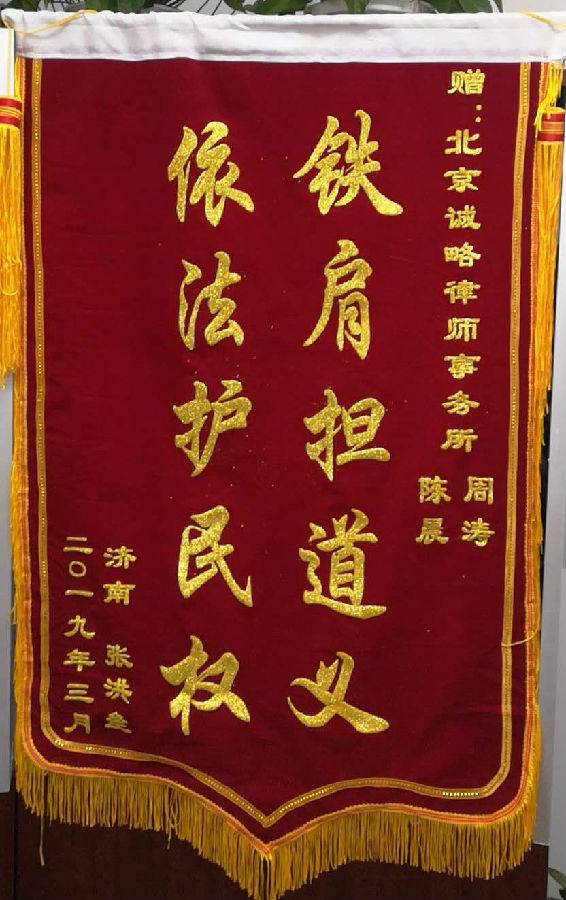 赠：北京诚略律师事务所
周涛
陈晨
铁肩担道义
依法护民权
济南 张洪
二〇一九年三月